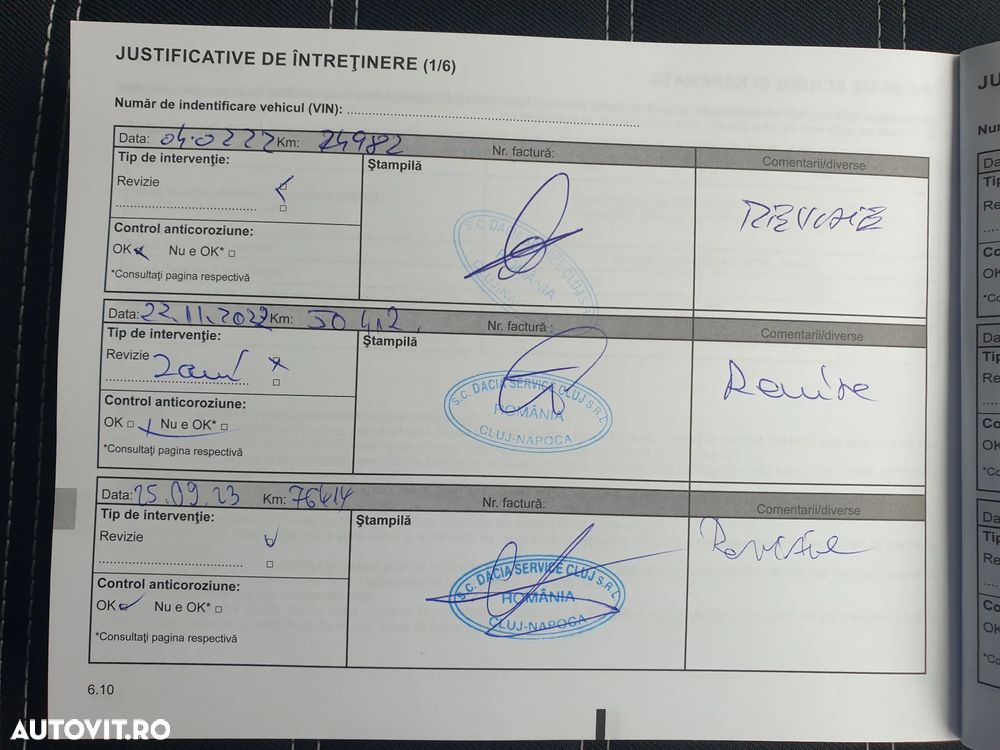 JUSTIFICATIVE DE ÎNTREŢINERE (1/6)
Număr de indentificare vehicul (VIN): ........................................
Data: 04.02 22 Km: 24982 Nr. factură: Comentarii/diverse
Tip de intervenţie: Ştampilă
Revizie REVIZIE
Control anticoroziune:
OK Nu e OK*
*Consultaţi pagina respectivă
S.C. DACIA SERVICE CLUJ S.R.L.
ROMÂNIA
CLUJ-NAPOCA
Data: 22.11.2022 Km: Nr. factură : Comentarii/diverse
Tip de intervenţie: Ştampilă
Revizie
Control anticoroziune:
OK Nu e OK*
*Consultaţi pagina respectivă
S.C. DACIA SERVICE CLUJ S.R.L.
ROMÂNIA
CLUJ-NAPOCA
Data: 25.09.23 Km: 76414 Nr. factură: Comentarii/diverse
Tip de intervenţie: Ştampilă
Revizie
Control anticoroziune:
OK Nu e OK*
*Consultaţi pagina respectivă
S.C. DACIA SERVICE CLUJ S.R.L.
ROMÂNIA
CLUJ-NAPOCA
6.10
AUTOVIT.RO